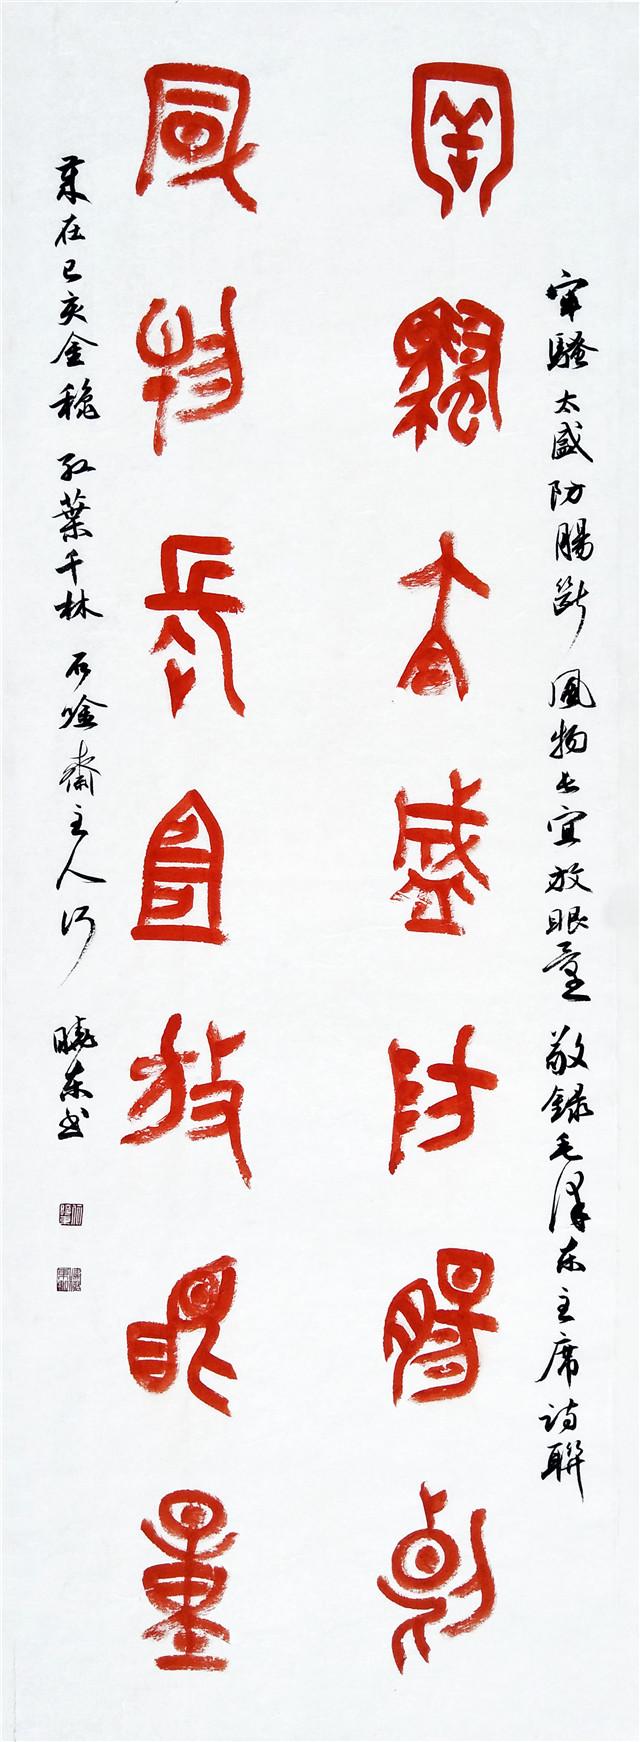 牢騷太盛防腸斷 風物长宜放眼量 敬録毛澤东主席诗聯
牢騷太盛防腸斷
風物長宜放眼量
歲在己亥金穐 红葉千林 石唫齋主人 曉东书